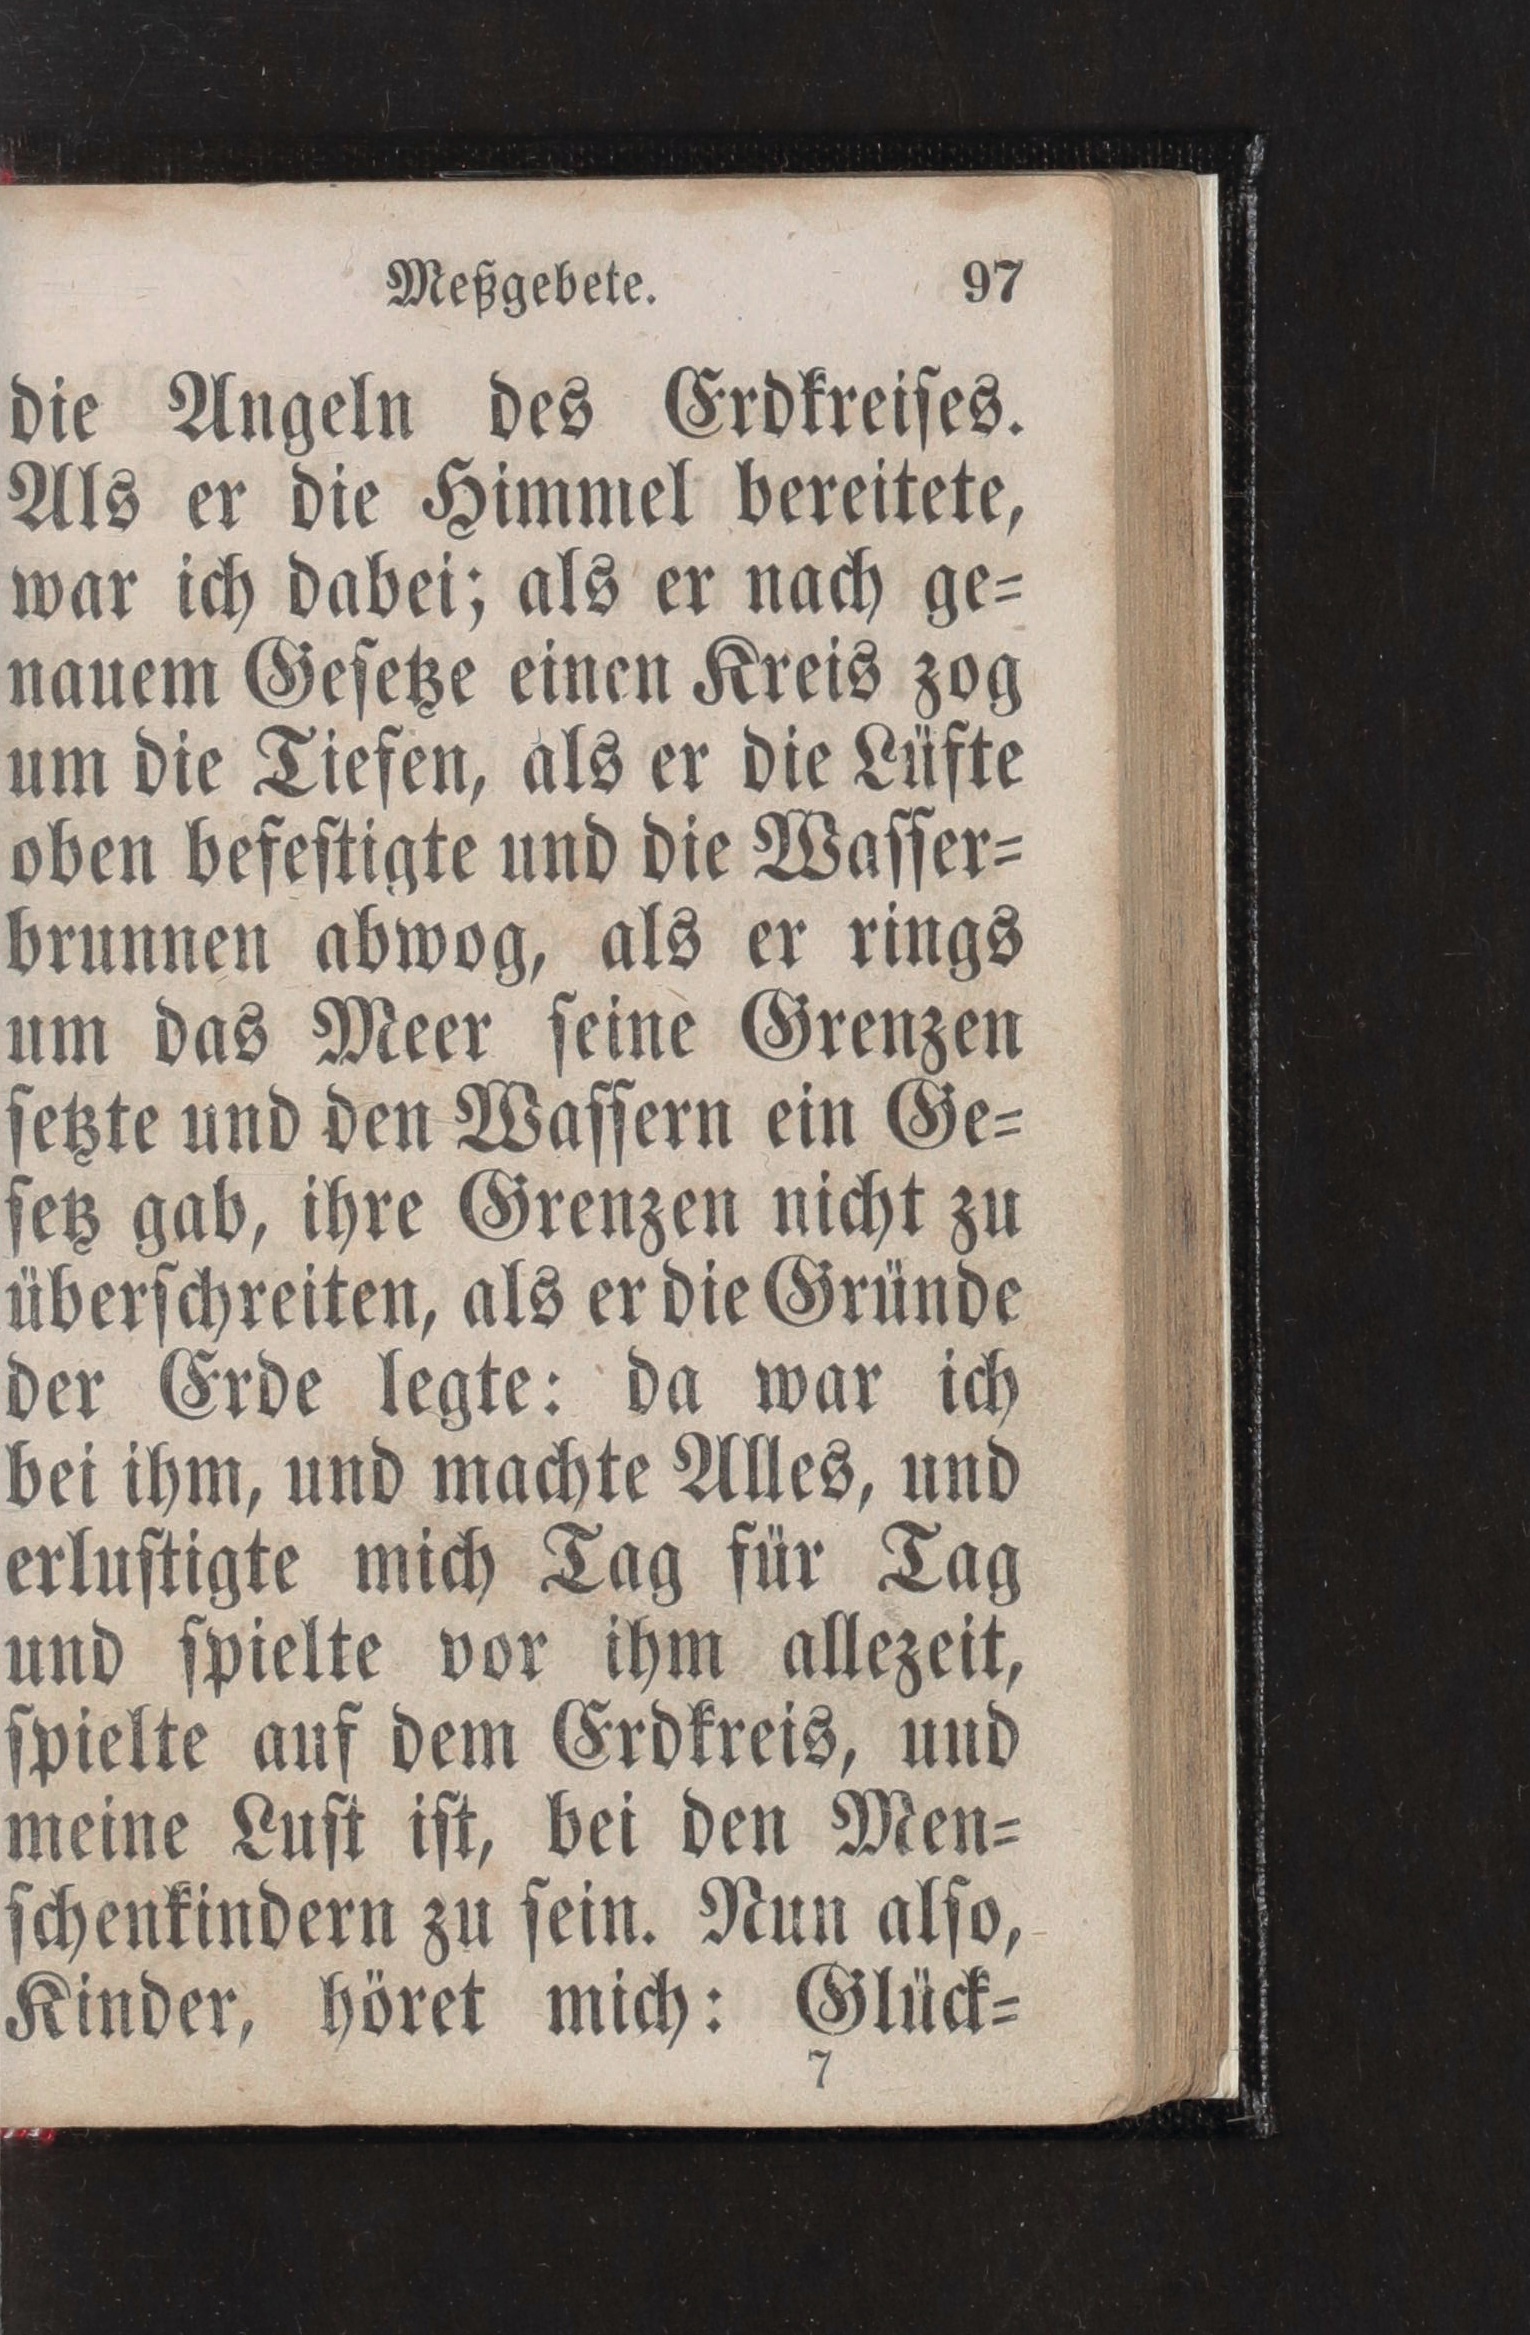 Meßgebete. 97
die Angeln des Erdkreiſes.
Als er die Himmel bereitete,
war ich dabei; als er nach ge-
nauem Geſetze einen Kreis zog
um die Tiefen, als er die Lüfte
oben befeſtigte und die Waſſer-
brunnen abwog, als er rings
um das Meer ſeine Grenzen
ſetzte und den Waſſern ein Ge-
ſetz gab, ihre Grenzen nicht zu
überſchreiten, als er die Gründe
der Erde legte: da war ich
bei ihm, und machte Alles, und
erluſtigte mich Tag für Tag
und ſpielte vor ihm allezeit,
ſpielte auf dem Erdkreis, und
meine Luſt iſt, bei den Men-
ſchenkindern zu ſein. Nun alſo,
Kinder, höret mich: Glück-
7